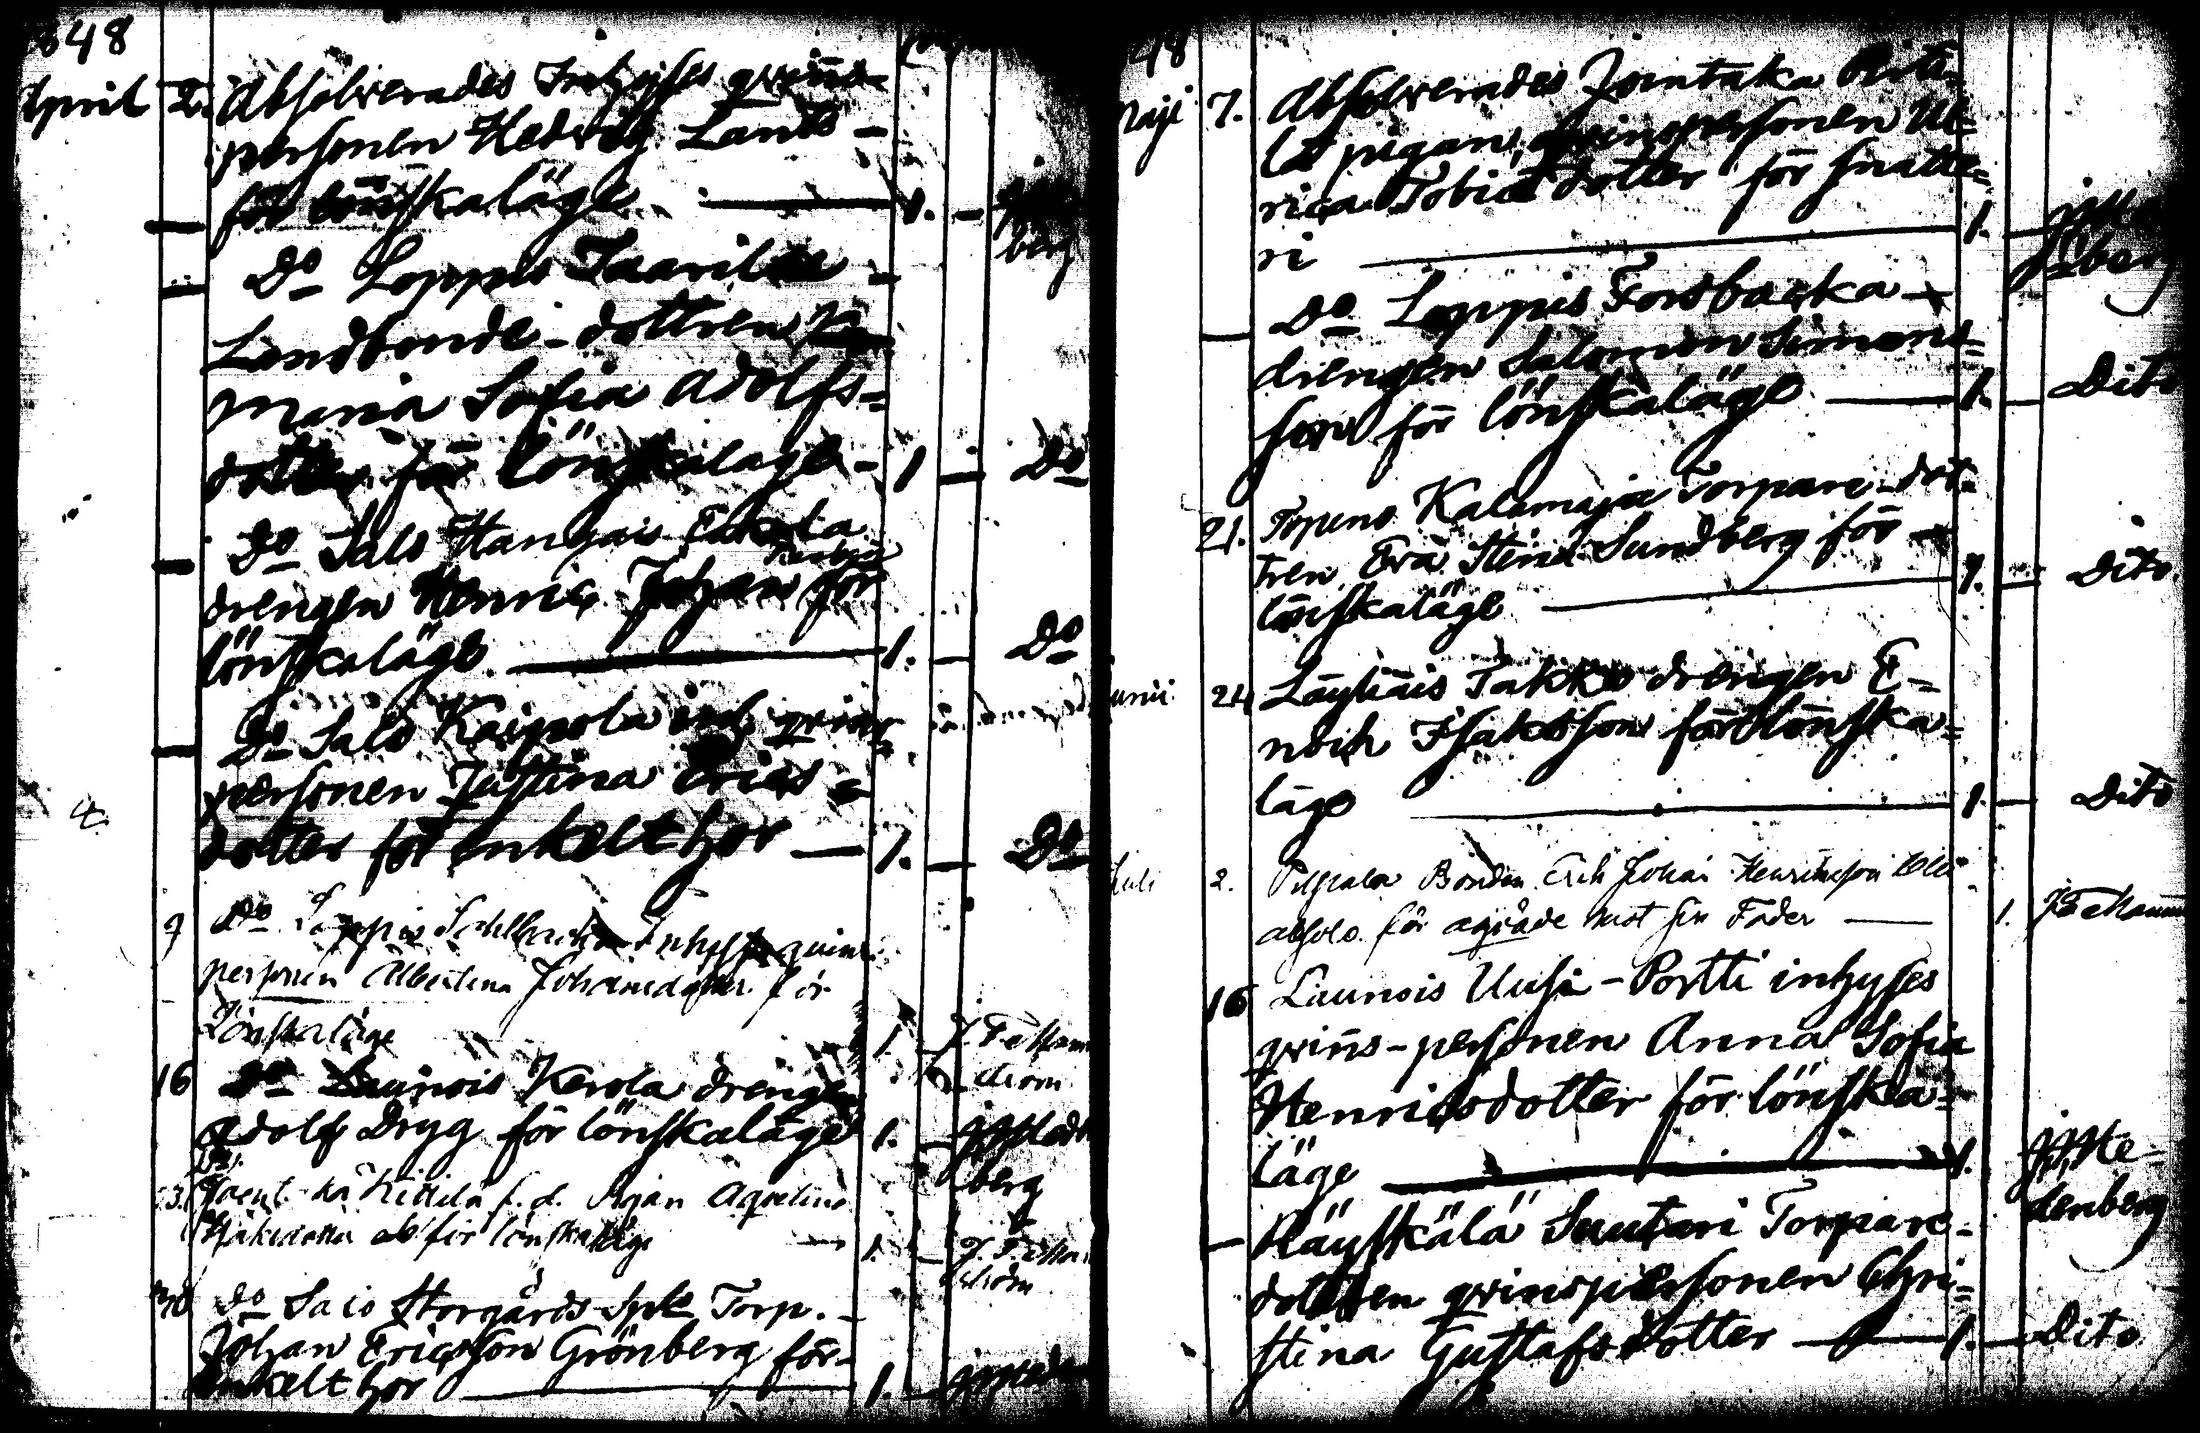 848
April 2. Absolverades Inhyses qvins-
personen Hedvig Lants-
för lönskaläge 1.
berg
Do Loppis Taarila
Landbonde-dottren
Maria Sofia Adolfs=
dotter för lönskaläge 1 Do
Do Salo Hangais Eskola
drengen Henric Johan för
lönskaläge 1. Do
Do Salo Kaipola inh. qvins
personen Justina Erics=
dotter för enkelt hor 1. Do
9 Do Loppis Sahlbacka Inhyses qvins
personen Albertina Johansdotter för
Lönskaläge 1.
16 Do Launois Kerola drengen
Adolf Dryg för lönskaläge 1.
berg
Kittilä f. d. Pigan Agvelina
Isaksdotter abs för lönskaläge 1.
30 Do Salo Storgårds Spk Torp.
Johan Ericsson Grönberg för
enkelt hor 1.
48
Maji 7. Absolverades Jomtaka
pigan, qvinspersonen Ul=
rica Tobiædotter för snatte=
ri 1.
berg
Do Loppis Forsbacka
drengen Salomon Simons=
son för lönskaläge 1. Dito
21. Topeno Kalamaja Torpare-dot-
tren Eva Stina Sundberg för
lönskaläge 1. Dito
Junii 24 Läyliäis Takko drengen E-
noch Isaksson för lönska=
läge 1. Dito
Juli 2. Pilpala Bonden Erik Johan Henriksson
absolv. för agråde mot sin Fader 1.
16 Launois Uusi-Portti inhyses
qvins-personen Anna Sofia
Henricsdotter för lönska=
läge 1.
denberg
Räyskälä Suutari Torpare-
dottren qvinspersonen Chri=
stina Gustafsdotter 1. Dito